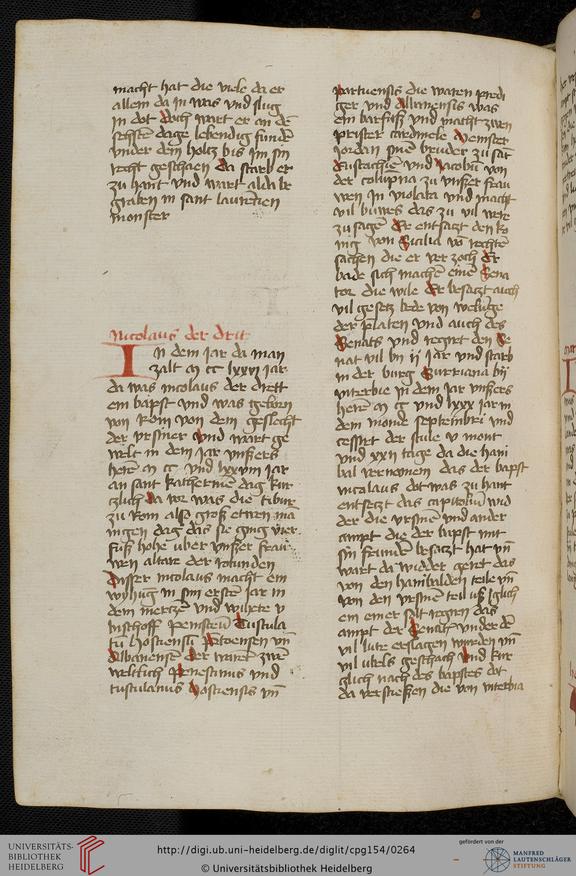 macht hat die viele da er
allein da in was vnd slug
in dot doch wart er an dē
sehsten dage lebendig fundē
vnder dem holtz bis im sin
recht geschaen da starb er
zu hant vnd wart alda be
graben in sant laurencien
monster
Nicolaus der drit
In dem jar da man
zalt m cc lxxvij jar
da was nicolaus der drett
ein babst vnd was geborn
von Rom von dem geslecht
der vrsiner vnd wart ge
welt in dem jar vnsers
herē m cc vnd lxxviij jar
an sant katherinē dag kur
czlich da vor was die tibur
zu Rom also groß etwen ma
nigen dag das sie ging vier
fuß hohe uber vnser frau
wen altare der rotunden
Disser nicolaus macht ein
wyhūg in sim erstē jar in
dem mertze vnd wihete v
bisthoff
Albanensē der warē zwē
weltlich Penestinus vnd
tusculanus hostiensis vñ
portuensis die waren predi
ger vnd Albanensis was
ein barfuß vnd macht zwen
prister cardinele
Jordan sinē bruder zu sāt
Eustachiē vnd Jacobū von
der columna zu vnser frau
wen in violata vnd macht
vil buwes das zu vil were
zu sagē Er entsatzt den ko
nig von Sicilia vō rechtē
sachen die er ver zoch Er
bade sich machē einē Sena
tor die wile Er besatzt auch
vil gesetz bede von welūge
der prelaten vnd auch des
Senats vnd regirt den Se
nat vil bij ij jar vnd starb
in der burg Surriana bij
viterbie in dem jar vnsers
herē m cc vnd lxxx jar in
dem monde septembri vnd
cessirt der stule v mont
vnd xxij tage da die hani
bal vernomem das der bapst
nicolaus dot was zu hant
entsetzt das capitoliū wid
der die vrsinē vnd ander
ampt die der bapst mit
sin frunden besatzt hat vñ
wart da widder geret das
von den hanibalden teile vñ
von den vrsinē teil
ein einer solt regirn das
ampt der Senat vnder dē
vil lute erslagen wurden vñ
vil ubels geschach vnd kur
czlich nach des bapstes dot
da verstießen die von viterbia
UNIVERSITÄTS-
BIBLIOTHEK
HEIDELBERG
http://digi.ub.uni-heidelberg.de/diglit/cpg154/0264
© Universitätsbibliothek Heidelberg
gefördert von der
MANFRED
LAUTENSCHLÄGER
STIFTUNG